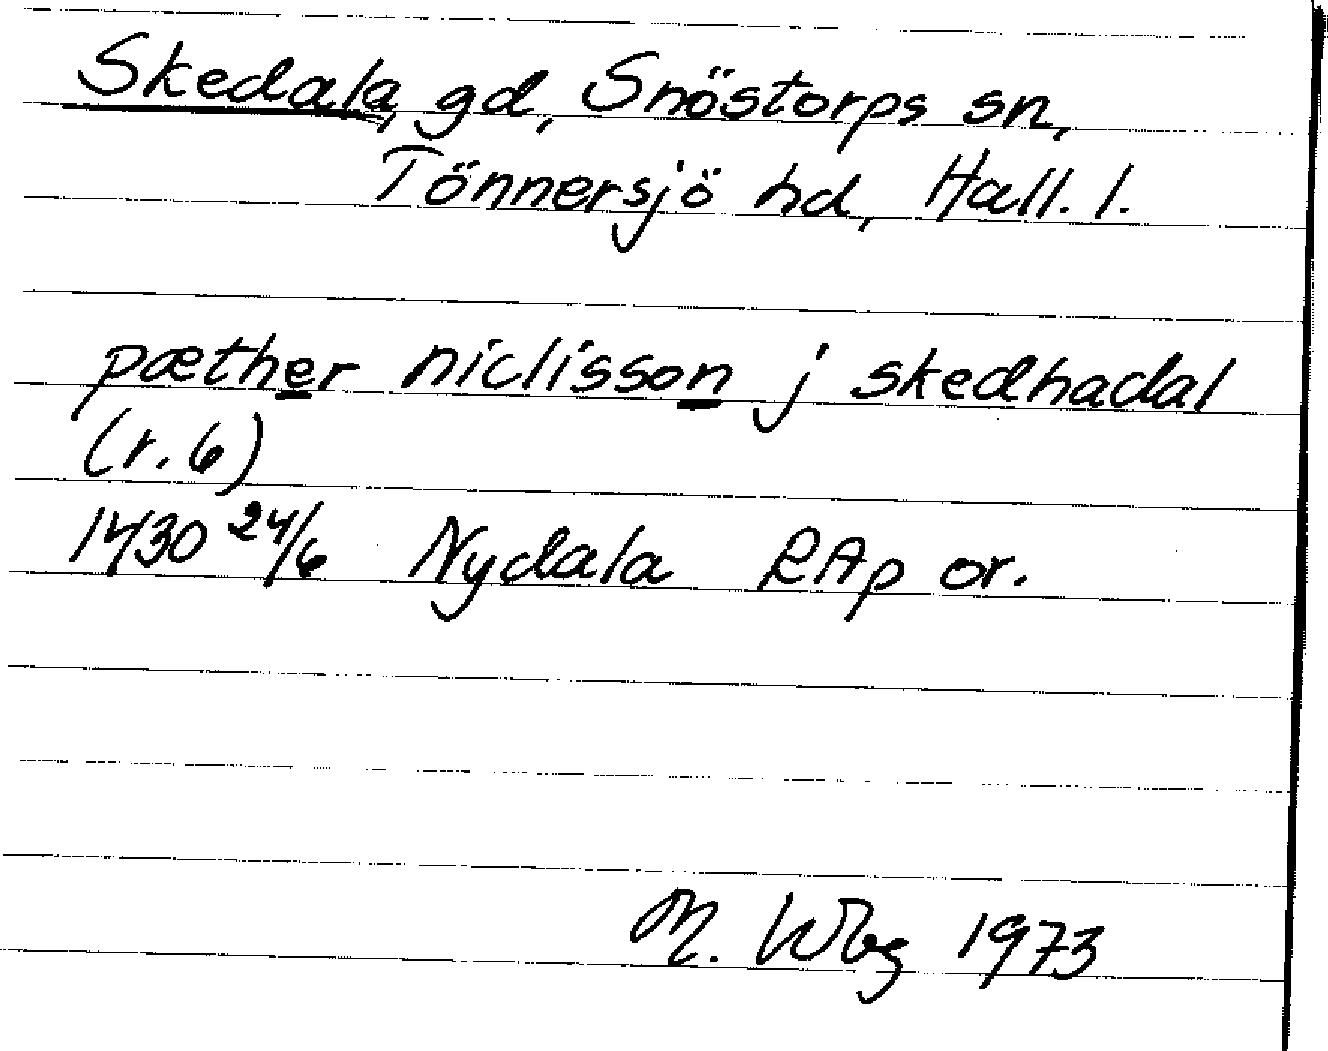 Skedala, gd, Snöstorps sn,
Tönnersjö hd, Hall. l.
pæther niclisson j skedhadal
(r. 6)
1430 24/6 Nydala RAp or.
M. Wbg 1973